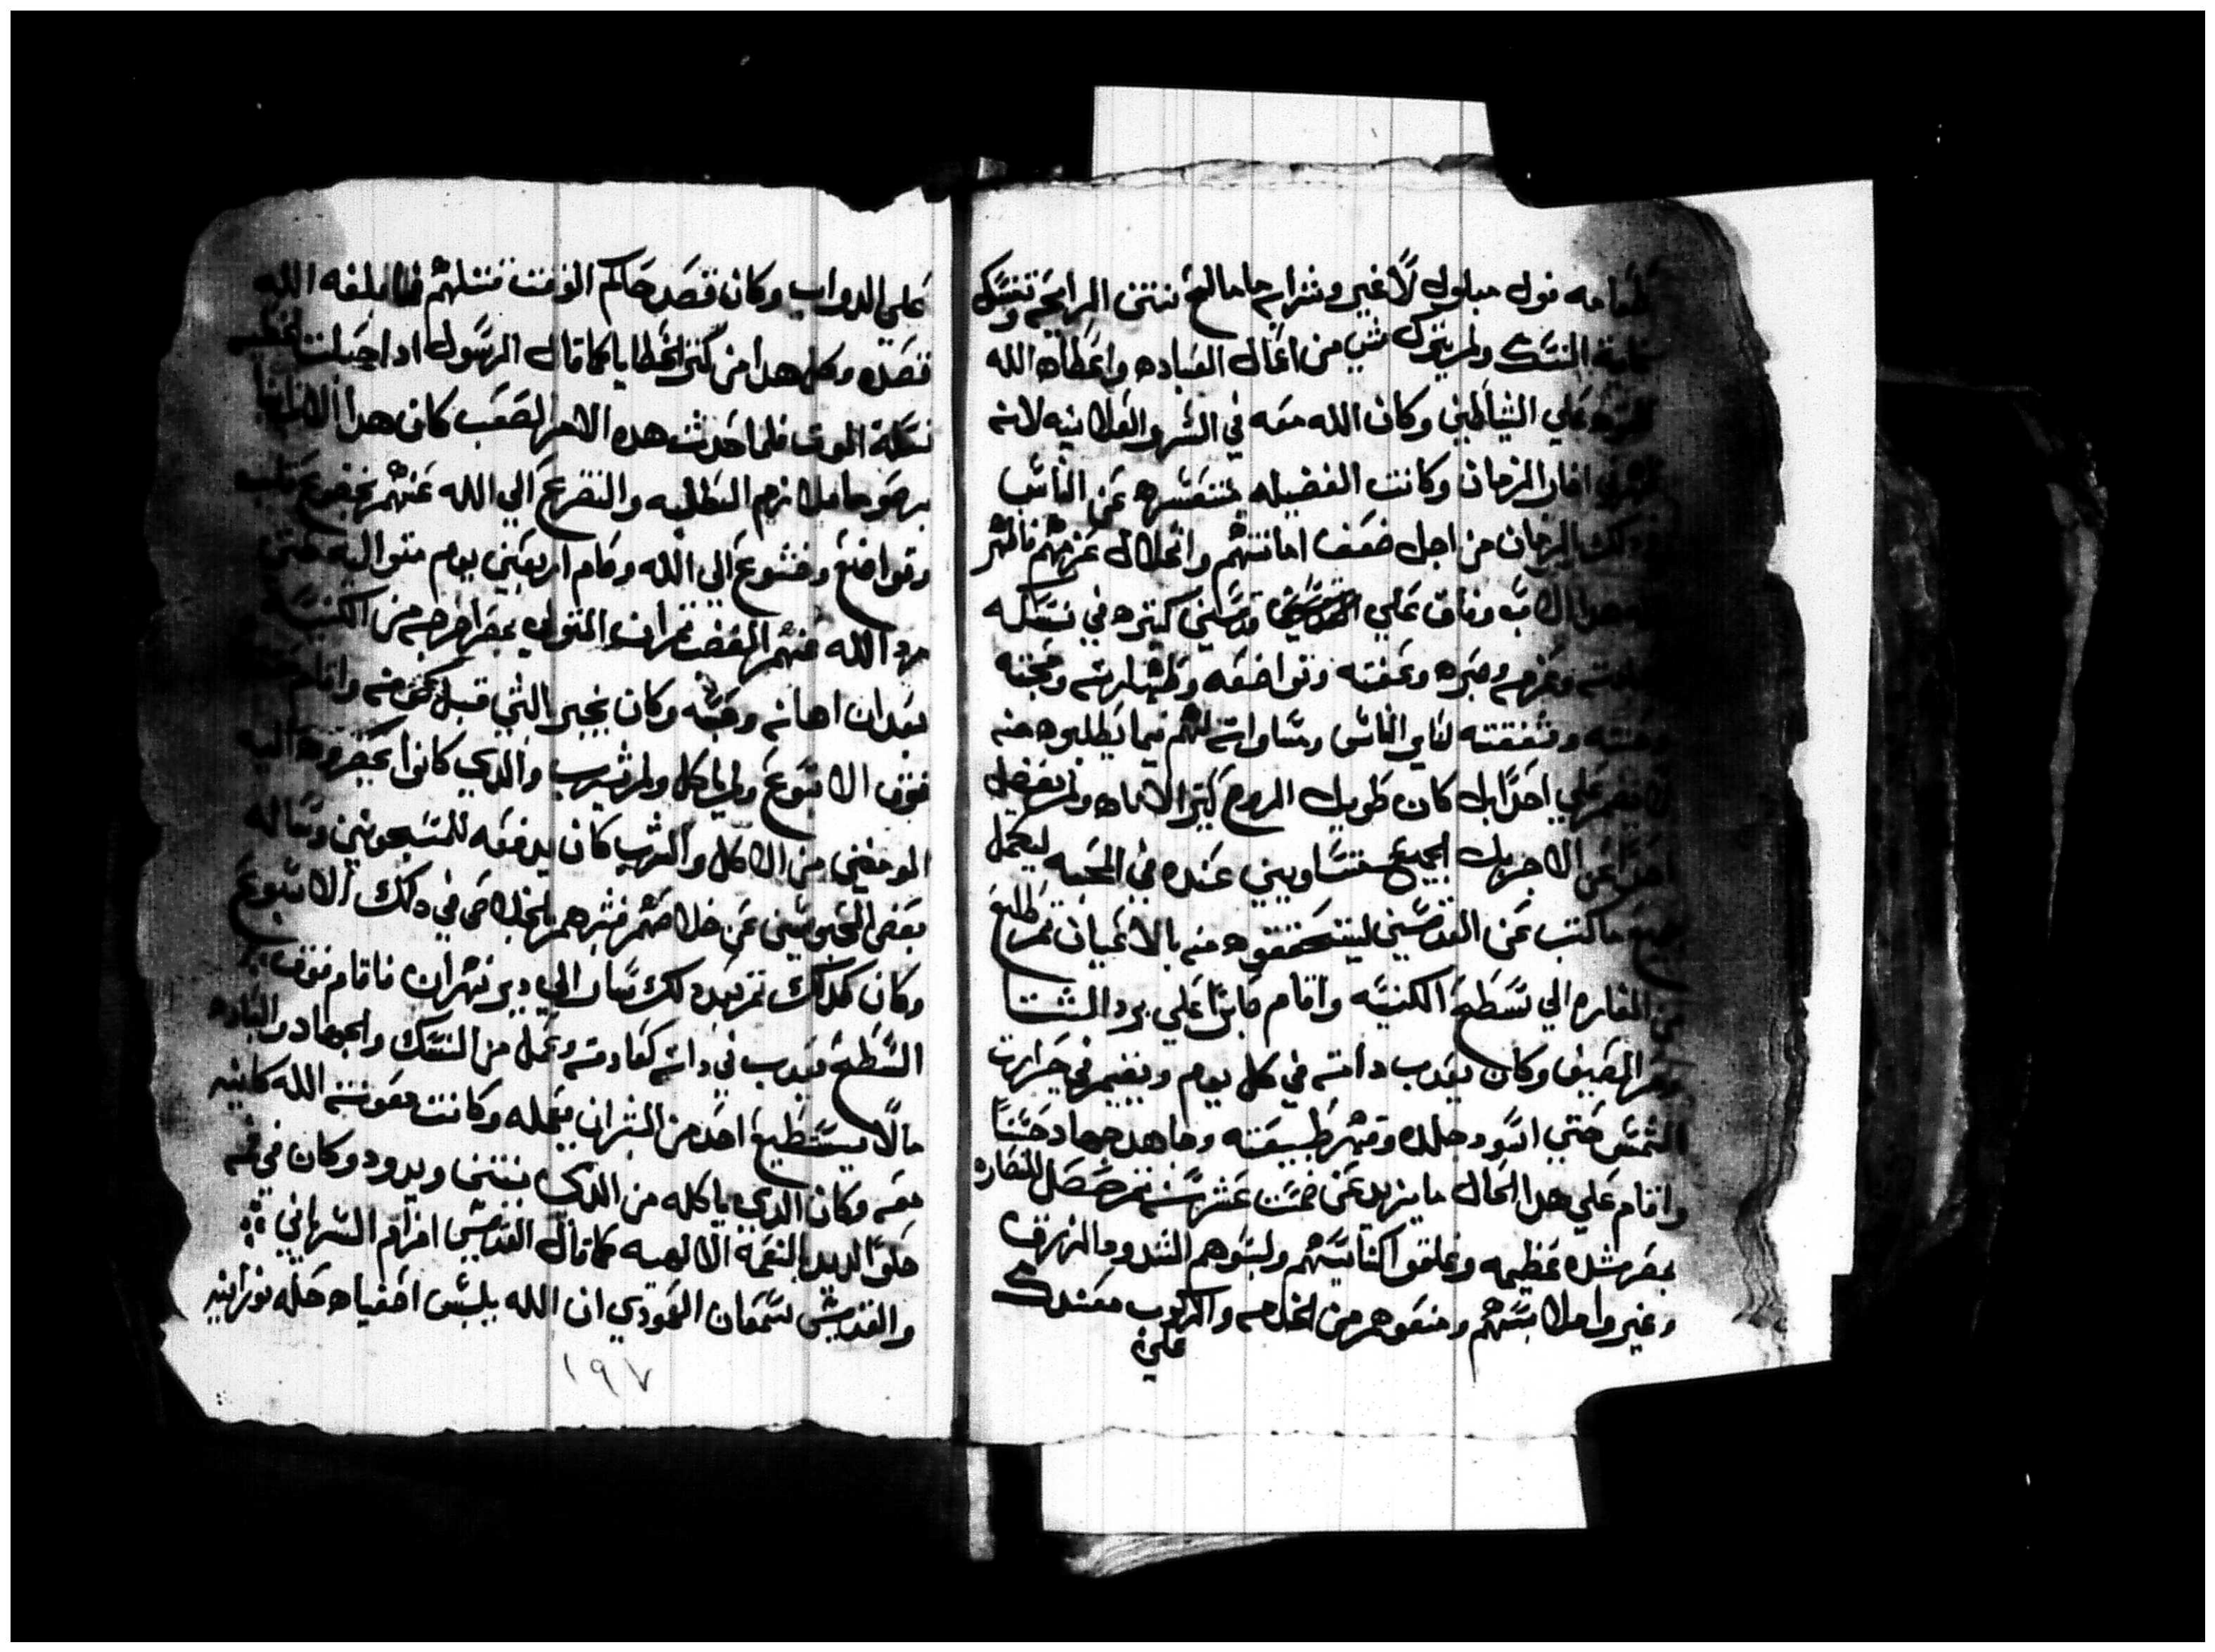 طعامه فول مبلول لا غير وشرابه ما مالح منتن الرايحه وتنسك
غاية النسك ولم يترك شي من اعمال العباده واعطاه الله
القوه علي الشياطين وكان الله معه في السر والعلانيه لانه
اخر الزمان وكانت الفضيله عن الناس
دلك الزمان من اجل ضعف امانتهم وانحلال عزمهم فاظهر
هدا الاب وفاق علي قديسين كتيره في نسكه
وعزمه وصبره وعفته وتواضعه وطهارته ومحبته
وشفقته لساير الناس ومساواته لهم فيما يطلبوه منه
لا علي احدا بل كان طويل الروح كتير الاناه ولم يفضل
احدا عن الاخر بل الجميع متساويين عنده في المحبه ليكمل
جميع ما كتب عن القديسين ليتحققوه منه بالاعيان تم طلع
من المغاره الي سطح الكنيسه واقام صابرا علي برد الشتا
وحر الصيف وكان يعدب داته في كل يوم ويقيم في حرارت
الشمس حتي اسود جلده وقهر طبيعته وجاهد جهاد حسنا
واقام علي هدا الحال ما يزيد عن خمست عشر سنه تم حصل للنصاره
بمصر شده عظيمه وغلقوا كنايسهم ولبسوهم الشدود الزرق
وغيروا ملابسهم ومنعوهم من الخدمه والركوب معدلك
علي
علي الدواب وكان قصد حاكم الوقت قتلهم فما بلغه الله
قصده وكل هدا من كتر الخطايا كما قال الرسول ادا حبلت الخطيه
نسلة الموت فلما حدت هده الامر الصعب كان هدا الاب انبا
برصوما ملازم الطلبه والتضرع الي الله عنهم بخضوع قلب
وتواضع وخشوع الي الله وصام اربعين يوم متواليه حتي
رد الله عنهم الغضب تم ان المتولي بمصر اخرجه من الكنيسه
بعد ان اهانه وحبسه وكان يخبر بالشي قبل كونه واقام
فوق الاسبوع ولم ياكل ولم يشرب والدي كانوا يحضروه اليه
المومنين من الاكل والشرب كان يدفعه للمسجونين وساله
بعض المحبوسين عن خلاصهم فبشرهم بالخلاص في دلك الاسبوع
وكان كدلك تم بعد دلك سار الي دير شهران فاقام فوق
السطح يعدب في داته كعادته وعمل من النسك والجهاد والعباده
مالا يستطيع احد من البشر ان يعمله وكانت معونت الله كاينه
معه وكان الدي ياكله من الدي ينتن ويدود وكان في فمه
حلوا لديد بالنعمة الالهيه كما قال القديس افرام السرياني
والقديس سمعان العمودي ان الله يلبس اصفياه حله نورانيه
١٩٧